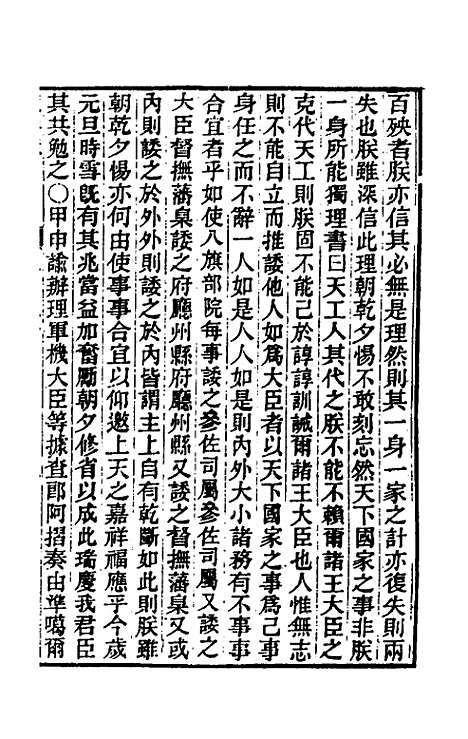 百殃者朕亦信其必無是理然則其一身一家之計亦復失則兩
失也朕雖深信此理朝乾夕惕不敢刻忘然天下國家之事非朕
一身所能獨理書曰天工人其代之朕不能不賴爾諸王大臣之
克代天工則朕固不能已於諄諄訓誡爾諸王大臣也人惟無志
則不能自立而推諉他人如爲大臣者以天下國家之事爲己事
身任之而不辭一人如是人人如是則內外大小諸務有不事事
合宜者乎如使八旗部院每事諉之參佐司屬參佐司屬又諉之
大臣督撫藩臬諉之府廳州縣府廳州縣又諉之督撫藩臬又或
內則諉之於外外則諉之於內皆謂主上自有乾斷如此則朕雖
朝乾夕惕亦何由使事事合宜以仰邀上天之嘉祥福應乎今歲
元旦時雪旣有其兆當益加奮勵朝夕修省以成此瑞慶我君臣
其共勉之○甲申諭辦理軍機大臣等據查郎阿摺奏由準噶爾